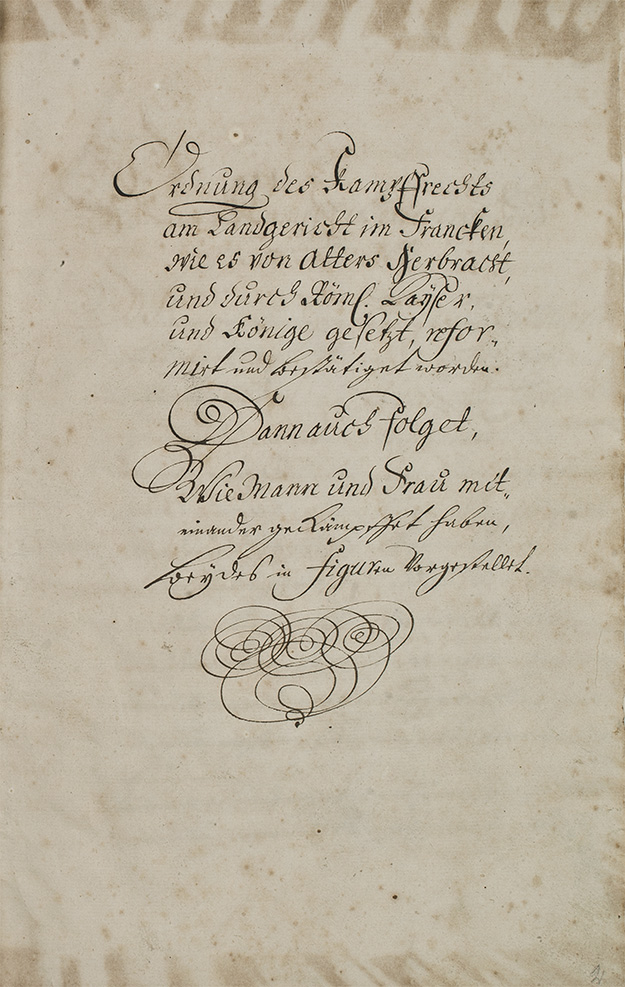 Ordnung des Kampffrechts
am Landgericht im Francken,
wie es von Alters Herbracht,
und durch Röml. Kayser,
und Könige gesetzt, refor-
mirt und bestätiget worden.
Dann auch folget,
Wie Mann und Frau mit-
einander gekämpffet haben,
beydes in figuren Vorgestellet.